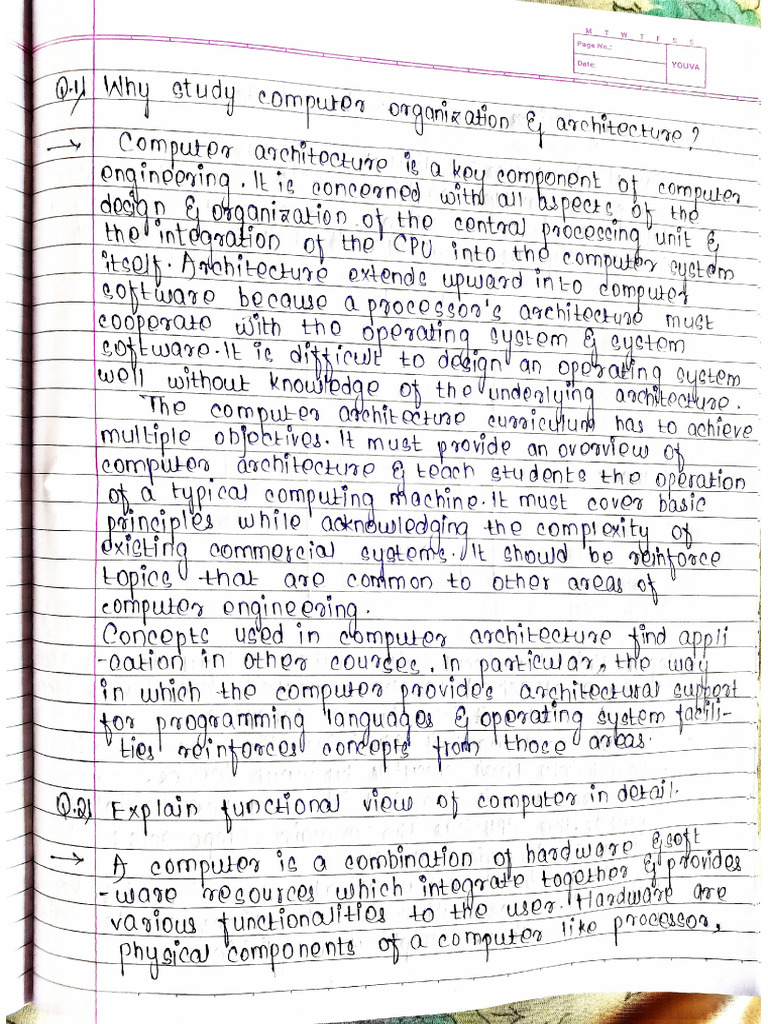 M T W T F S S
Page No.:
Date:
YOUVA
Q.1) Why study computer organization & architecture?
→ Computer architecture is a key component of computer
engineering. It is concerned with all aspects of the
design & organization of the central processing unit &
the integration of the CPU into the computer system
itself. Architecture extends upward into computer
software because a processor's architecture must
cooperate with the operating system & system
software. It is difficult to design an operating system
well without knowledge of the underlying architecture.
The computer architecture curriculum has to achieve
multiple objectives. It must provide an overview of
computer architecture & teach students the operation
of a typical computing machine. It must cover basic
principles while acknowledging the complexity of
existing commercial systems. It should be reinforce
topics that are common to other areas of
computer engineering.
Concepts used in computer architecture find appli
-cation in other courses. In particular, the way
in which the computer provides architectural support
for programming languages & operating system facili-
ties reinforces concepts from those areas.
Q.2) Explain functional view of computer in detail.
→ A computer is a combination of hardware & soft
-ware resources which integrate together & provides
various functionalities to the user. Hardware are
physical components of a computer like processor,